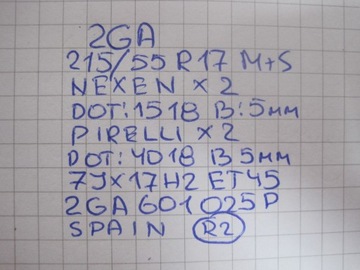 2GA
215/55 R17 M+S
NEXEN x 2
DOT:1518 B:5мм
PIRELLI x 2
DOT:4018 B 5мм
7Jx17H2 ET45
2GA 601 025 P
SPAIN R2